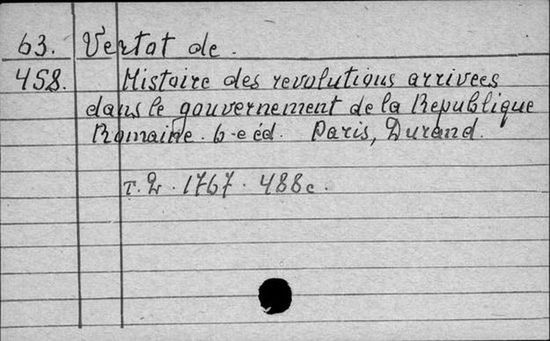 63. Vertot de.
458. Histoire des revolutions arrivees
dans le gouvernement de la Republique
Romaine. 6-e éd. Paris, Durand.
T. 2. 1767. 488 c.